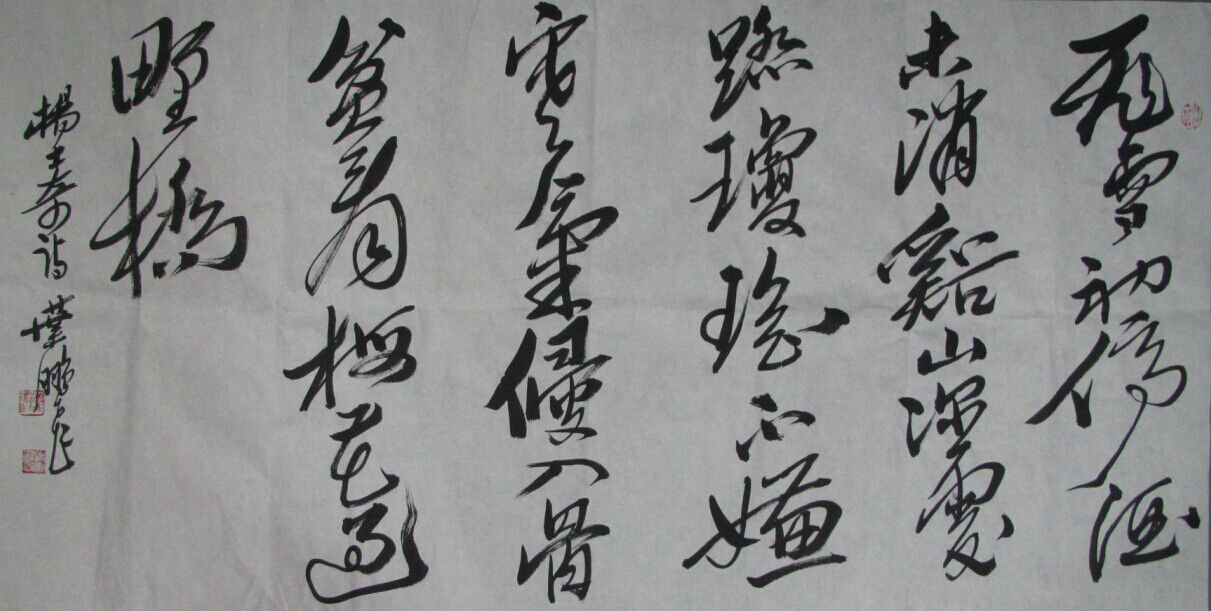 飛雪初停酒
未消谿山深處
踏瓊瑤不嫌
寒氣侵入骨
貪看梅花過
野橋
楊士奇詩 葉鵬飛作